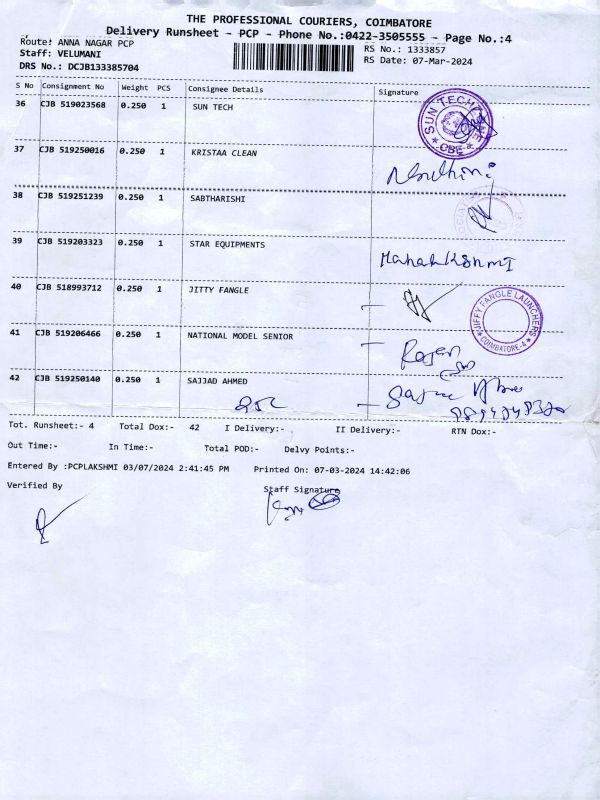 THE PROFESSIONAL COURIERS, COIMBATORE
Delivery Runsheet - PCP - Phone No.:0422-3505555 - Page No.:4
Route: ANNA NAGAR PCP RS No.: 1333857
Staff: VELUMANI RS Date: 07-Mar-2024
DRS No.: DCJB133385704
S No Consignment No Weight PCS Consignee Details Signature
36 CJB 519023568 0.250 1 SUN TECH SUN TECH CBE
37 CJB 519250016 0.250 1 KRISTAA CLEAN
38 CJB 519251239 0.250 1 SABTHARISHI
39 CJB 519203323 0.250 1 STAR EQUIPMENTS MahalakshmI
40 CJB 518993712 0.250 1 JITTY FANGLE JIFFY FANGLE LAUNCHERS COIMBATORE-4
41 CJB 519206466 0.250 1 NATIONAL MODEL SENIOR
42 CJB 519250140 0.250 1 SAJJAD AHMED
Tot. Runsheet:- 4 Total Dox:- 42 I Delivery:- II Delivery:- RTN Dox:-
Out Time:- In Time:- Total POD:- Delvy Points:-
Entered By :PCPLAKSHMI 03/07/2024 2:41:45 PM Printed On: 07-03-2024 14:42:06
Verified By Staff Signature